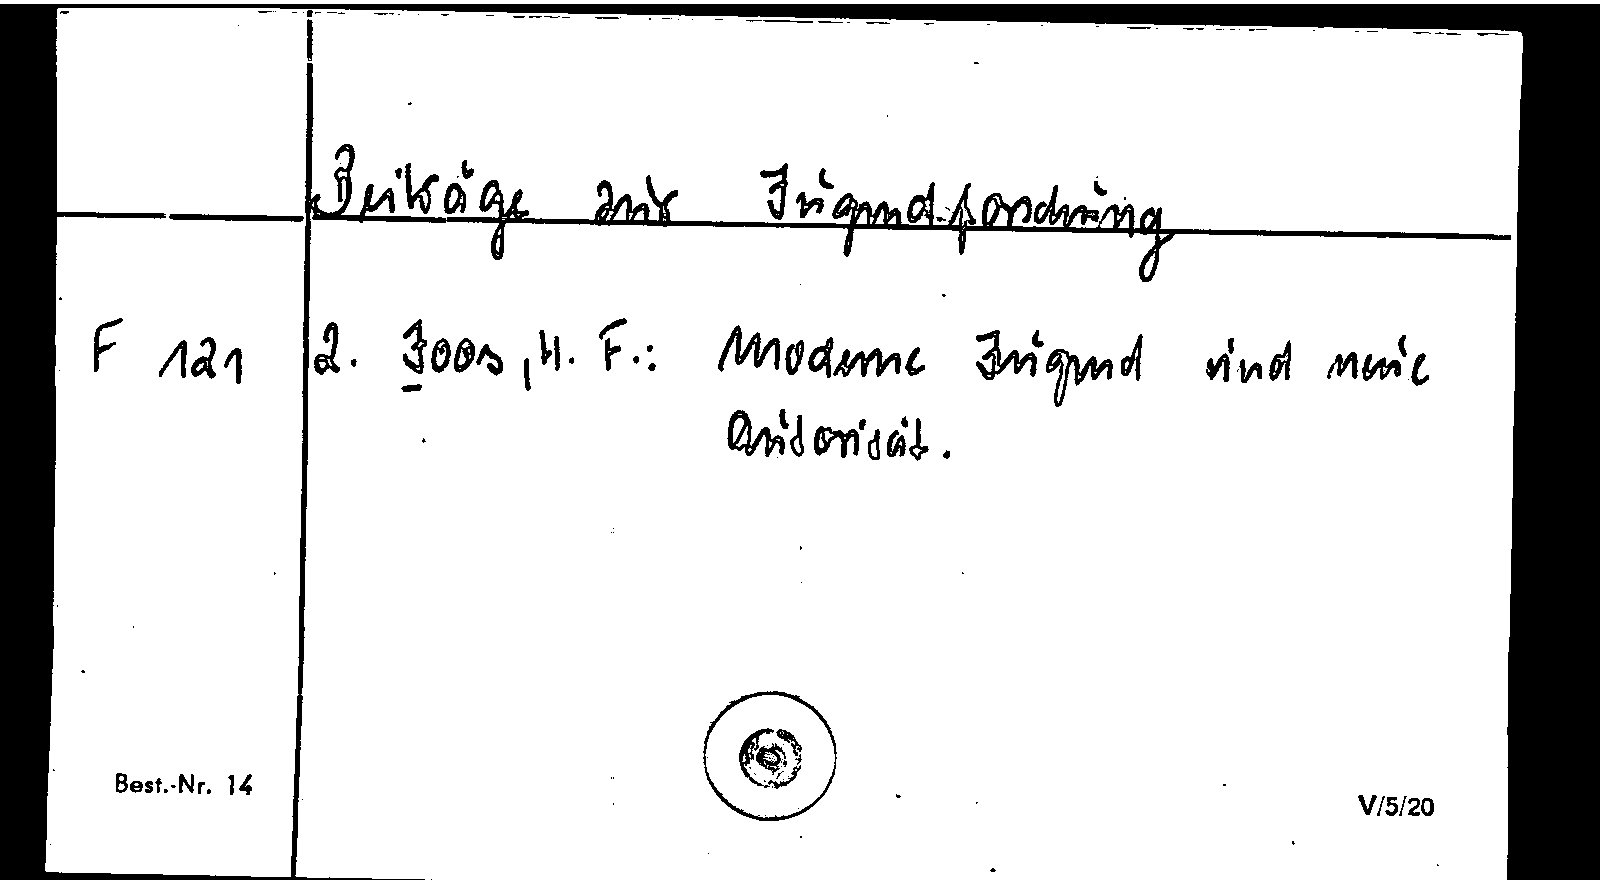 Beiträge zur Jugendforschung
F 121 2. Joos, H. F.: Moderne Jugend und neue
Autorität.
Best.-Nr. 14
V/5/20